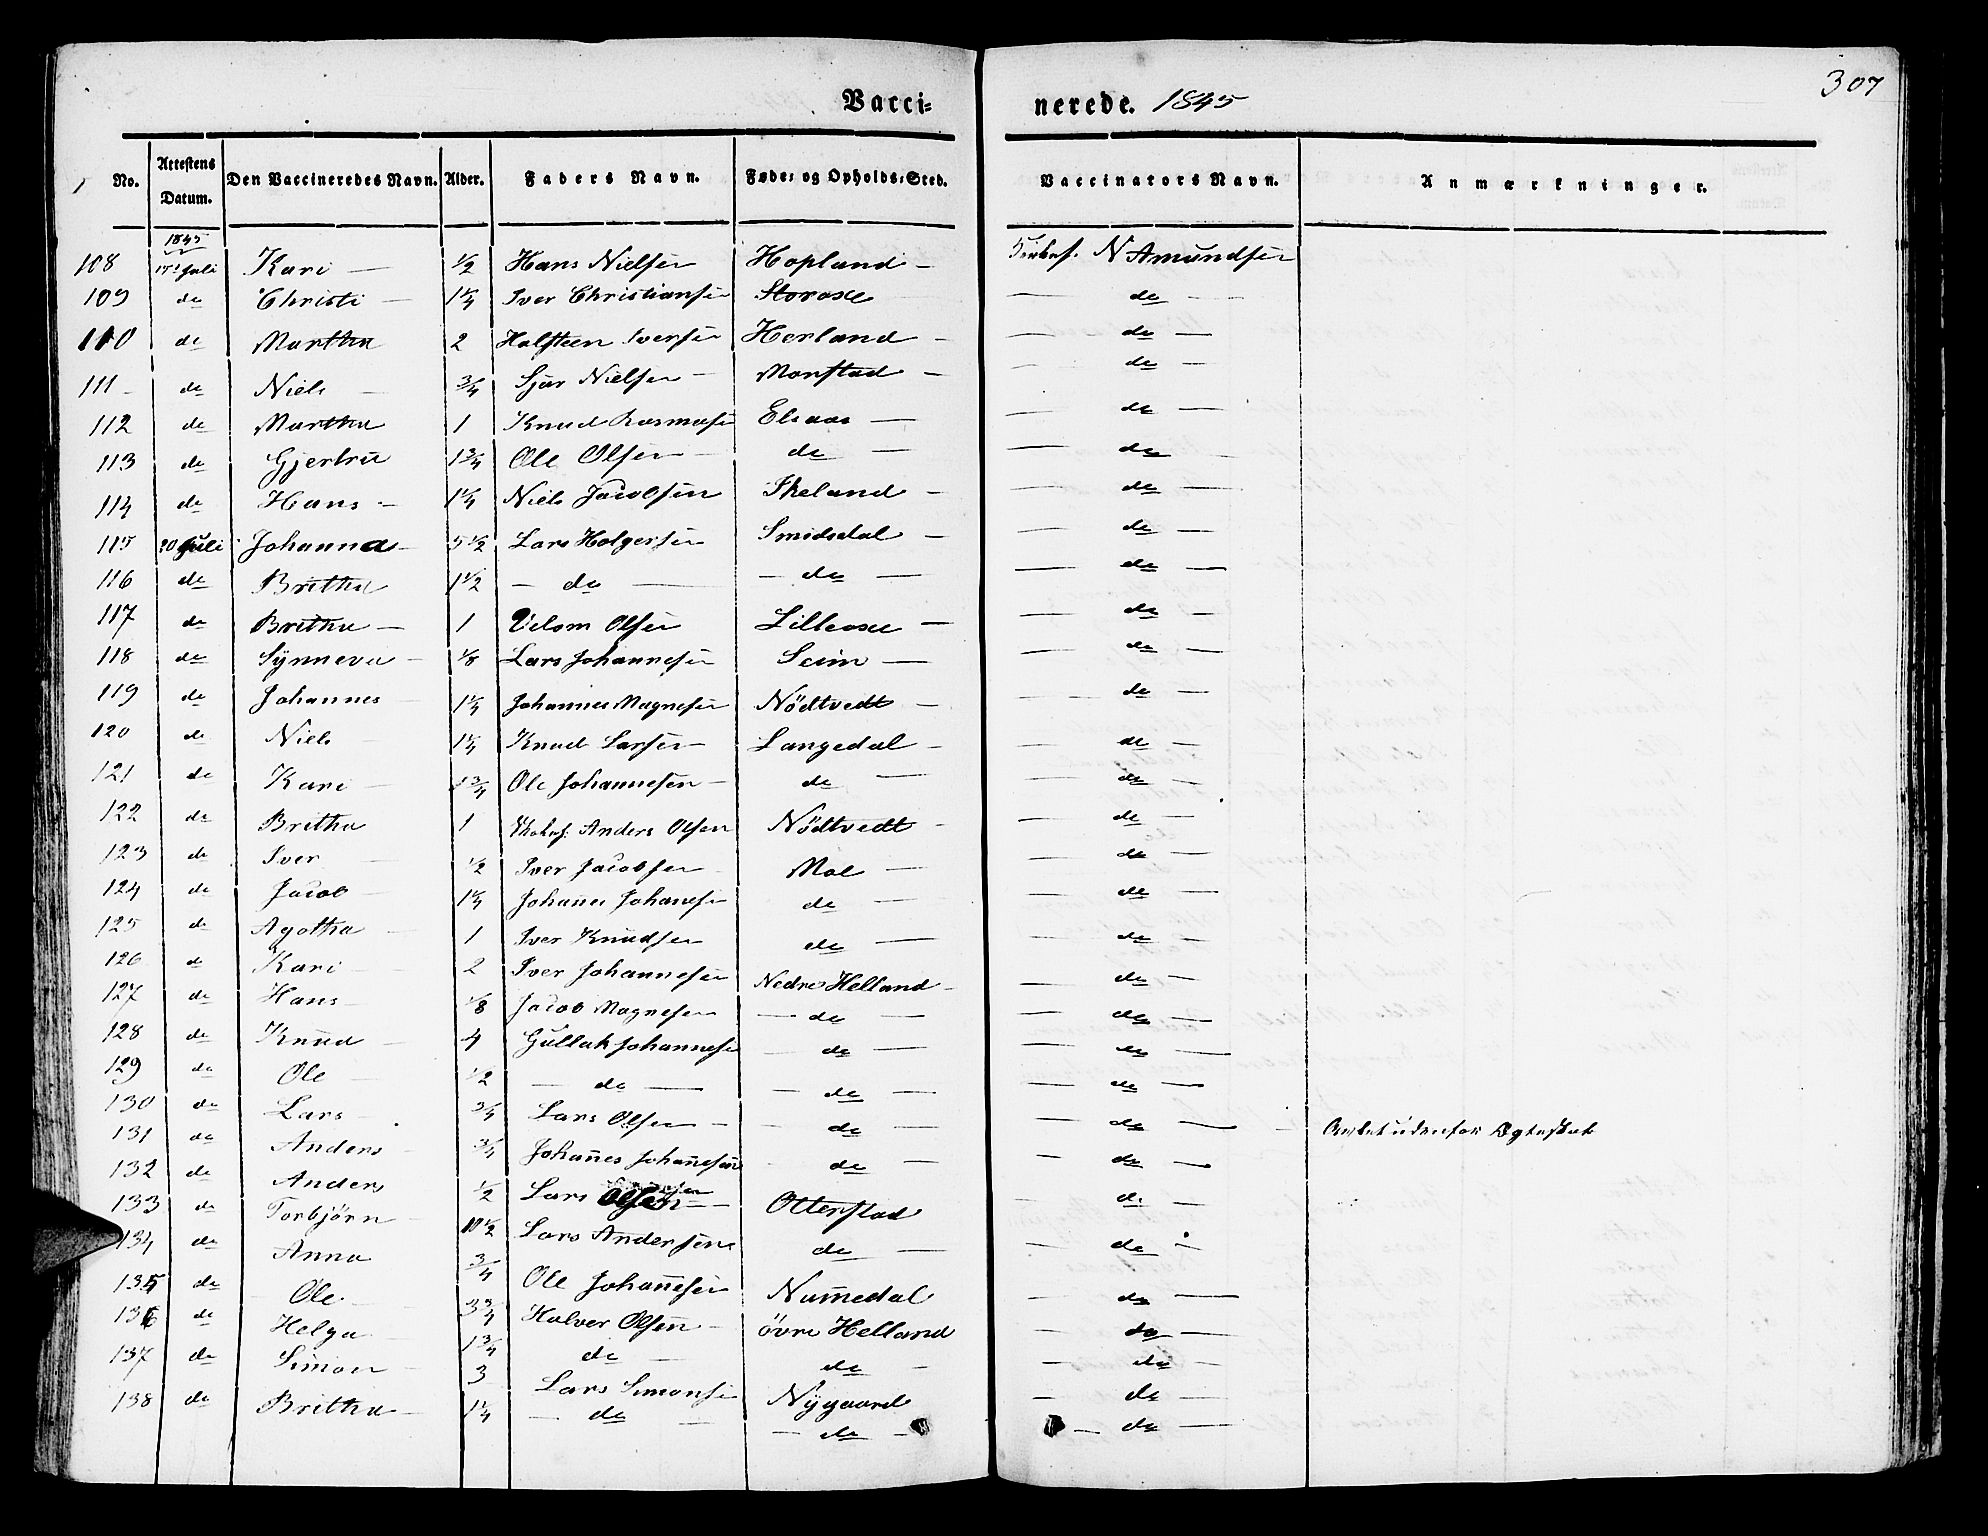 307
Vacci= nerede. 1845
No. Attestens Datum. Den Vaccineredes Navn. Alder. Faders Navn. Føde= og Opholds=Sted. Vaccinators Navn. Anmærkninger.
1845
108 17d Juli Kari — ½ Hans Nielsen Hopland — N Amundsen
109 do Christi — 1¼ Iver Christiansen Storoxe — do —
110 do Martha 2 Halsteen Iversen Herland — — do —
111 — do Niels — ¾ Sjur Nielsen — Monstad — — do —
112 do Martha 1 Knud Rasmusen Elsaas — — do —
113 do Gjertru 1¾ Ole Olsen — do — — do —
114 do Hans — 1¼ Niels Jacobsen Skeland — — do —
115 20 Juli Johanna — 5½ Lars Holgersen Smidsdal — — do —
116 do Britha 1½ — do — — do — — do —
117 do Britha — 1 Velom Olsen Lilleoxe — — do —
118 do Synneva — ⅛ Lars Johannesen Seim — — do —
119 do Johannes — 1¼ Johannes Magnesen Nödtvedt — — do —
120 do Niels 1¼ Knud Larsen — Langedal — — do —
121 do Kari — 1¾ Ole Johannesen — do — — do —
122 do Britha 1 Anders Olsen Nödtvedt — — do —
123 do Iver — ½ Iver Jacobsen — Moe — — do —
124 do Jacob — 1¼ Johanes Johanesen do — — do —
125 do Agotha — 1 Iver Knudsen do — — do —
126 do Kari — 2 Iver Johannesen Nedre Helland — — do —
127 do Hans — ⅛ Jacob Magnesen — do — — do —
128 do Knud — 4 Gullak Johannesen — do — — do —
129 do Ole — ½ — do — — do — — do —
130 do Lars — ¾ Lars Olsen — — do — — do — — Avlet udenfor Ægteskab
131 do Anders — ¾ Johanes Johanesen — do — — do —
132 do Anders ½ Lars Otterstad — do —
133 do Torbjörn — 10½ Lars Andersen do — — do —
134 do Anna ¾ Ole Johannesen Numedal — do —
135 do Ole — 3¾ Halver Olsen — övre Helland — do —
136 do Helga — 1¾ do — do — — do —
137 do Simon — 3 Lars Simonsen Nygaard — do —
138 do Britha — 1¼ — do — — do — — do —